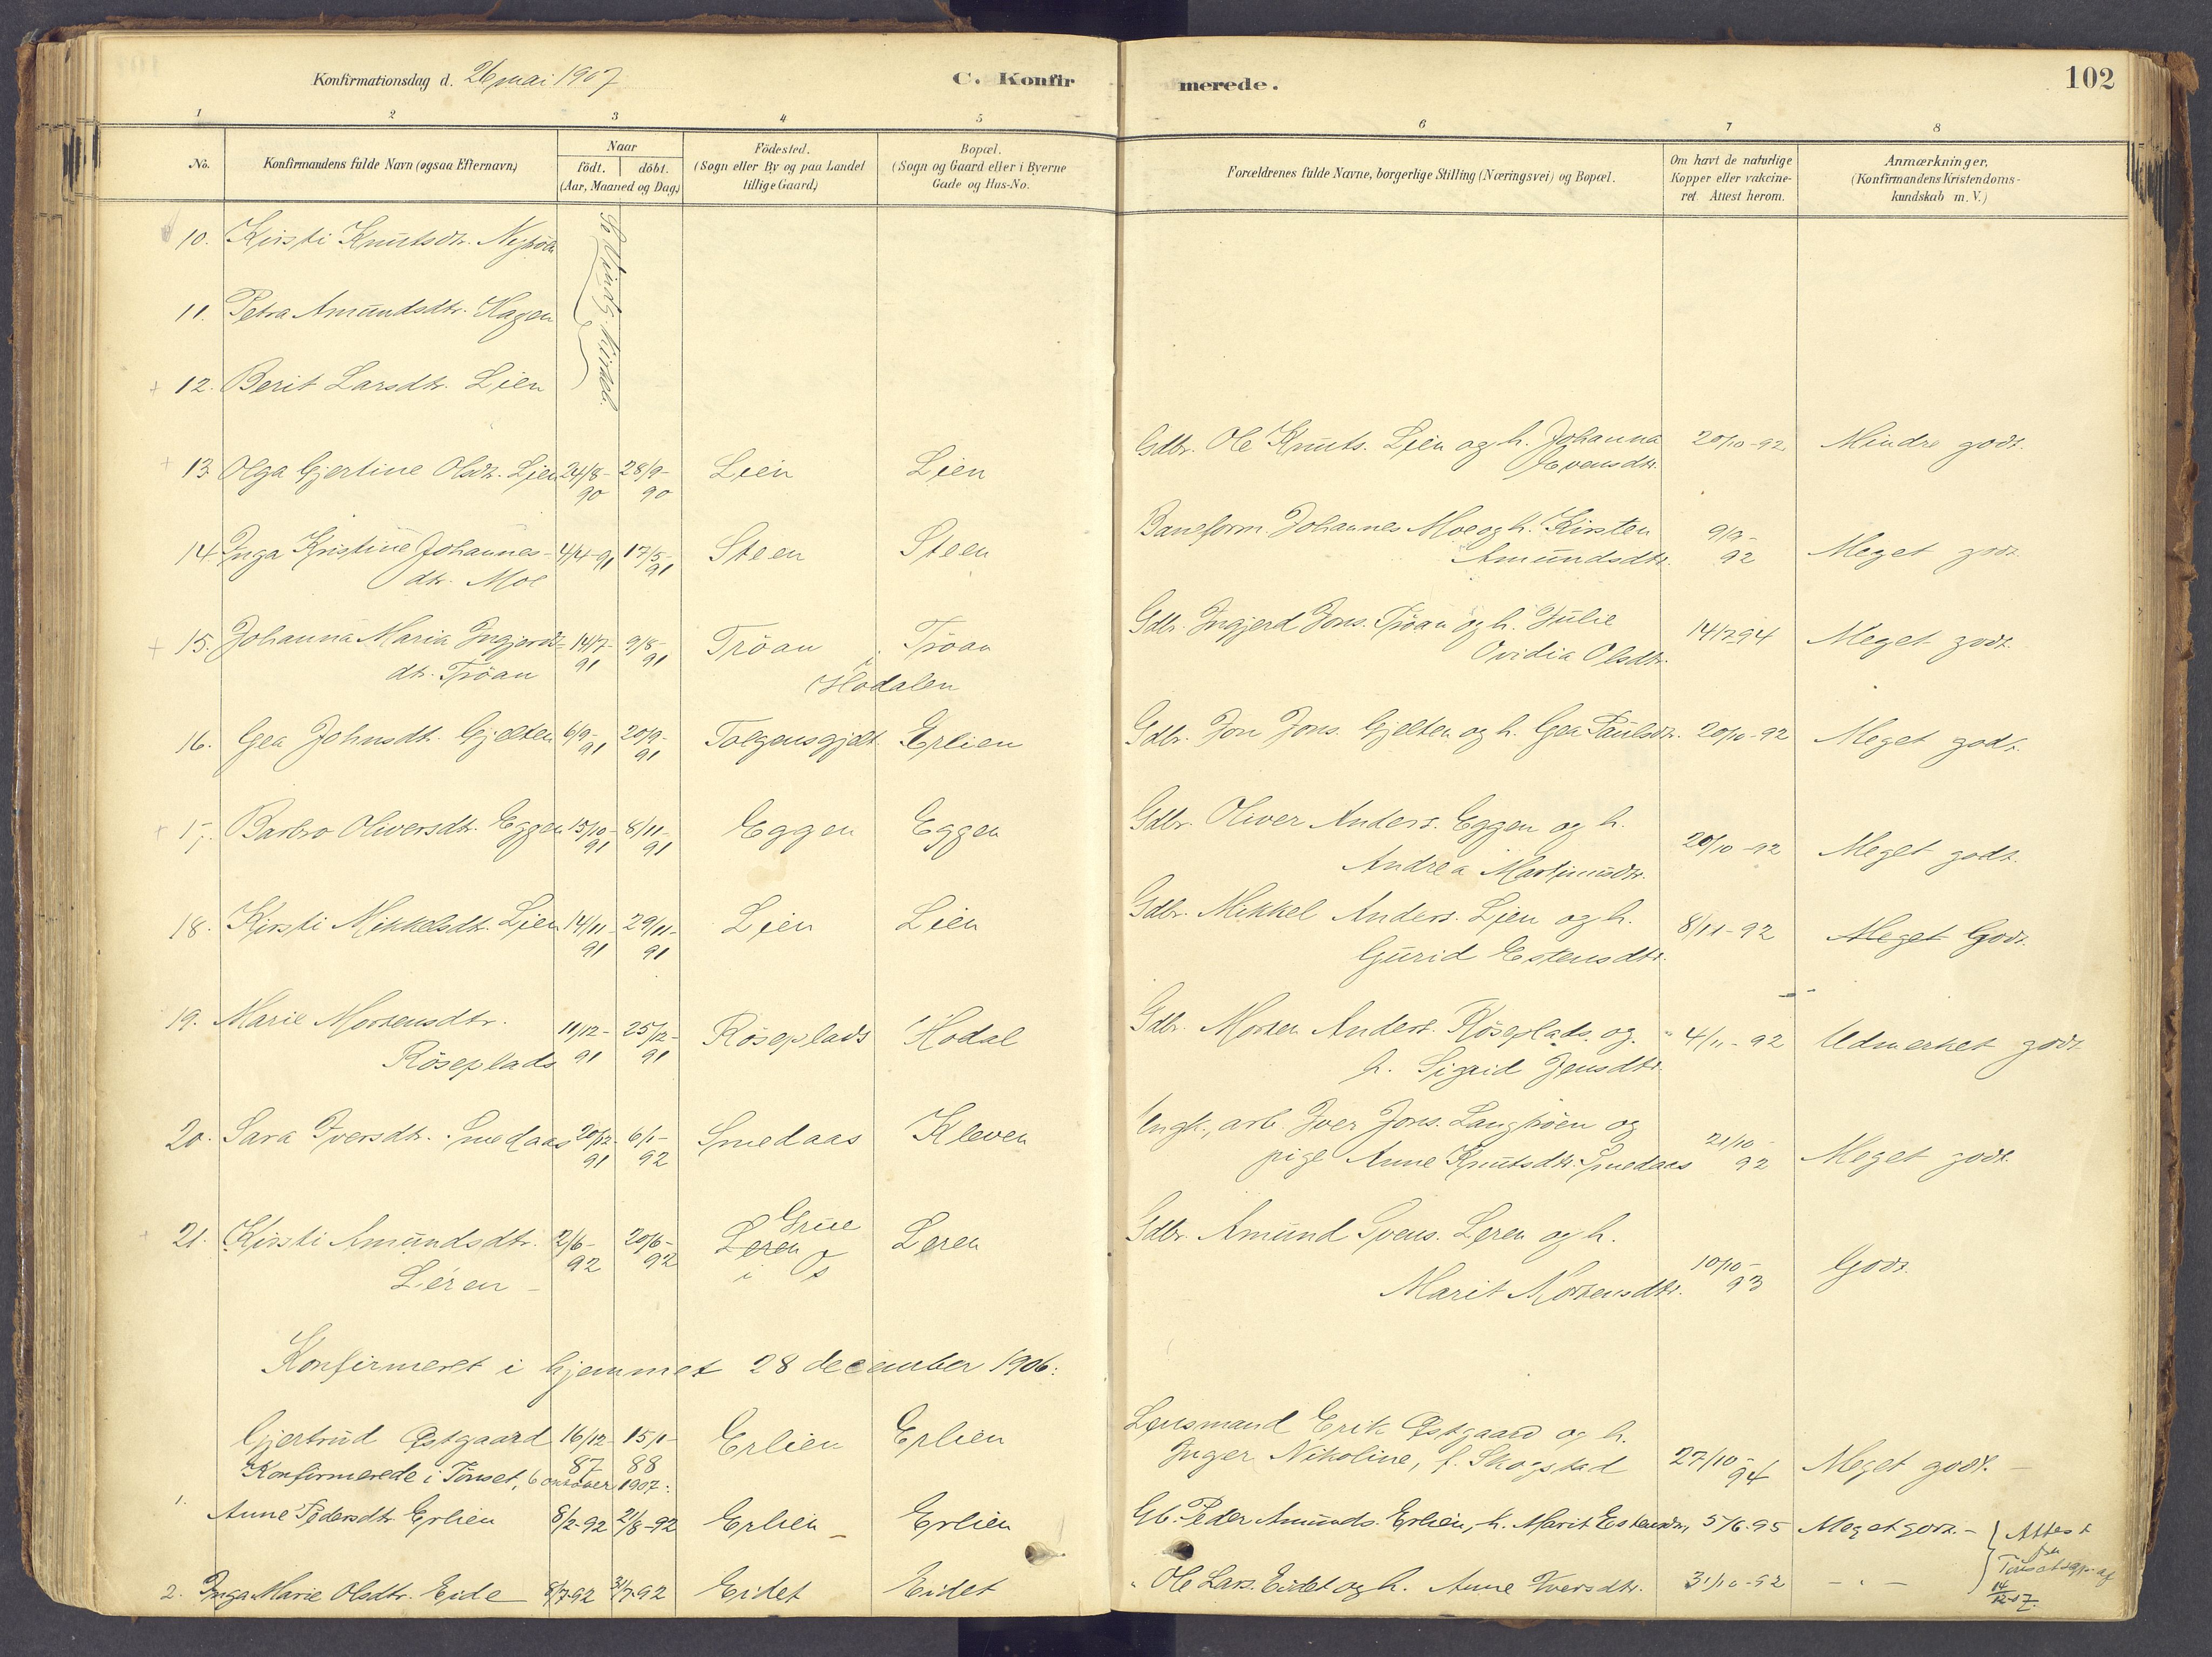 Konfirmationsdag d. 26 mai 1907
C. Konfirmerede.
102
1 2 3 4 5 6 7 8
No.
Konfirmandens fulde Navn (ogsaa Efternavn)
Naar
födt. döbt.
(Aar, Maaned og Dag)
Födested.
(Sogn eller By og paa Landet
tillige Gaard)
Bopæl.
(Sogn og Gaard eller i Byerne
Gade og Hus-No.
Forældrenes fulde Navne, borgerlige Stilling (Næringsvei) og Bopæl.
Om havt de naturlige
Kopper eller vakcine-
ret. Attest herom.
Anmærkninger.
(Konfirmandens Kristendoms-
kundskab m. V.)
10. Kirsti Knutsdtr.
11. Petra Amundsdtr. Hagen
12. Berit Larsdtr. Lien
13. Olga Gjertine Olsdtr. Lien 24/8-90 28/9-90 Lien Lien Gdbr. Ole Knuts. Lien og h. Johanna
Evensdtr. 20/10-92 Mindre godt.
14. Inga Kristine Johannes- 4/4-91 17/5-91 Steen Steen Baneform. Johannes Moe og h. Kirsten
dtr. Moe Amundsdtr. 92 Meget godt.
15. Johanna Maria Ingjerds- 14/7-91 9/8-91 Tröan Tröan Gdbr. Ingjerd Jons. Tröan og h. Julie
dtr. Tröan i Hodalen Ovidia Olsdtr. Meget godt.
16. Gea Johnsdtr. Gjelten 6/9-91 20/9-91 Tolgensgjelt. Erlien Gdbr. Jon Jons. Gjelten og h. Gea Paulsdtr. 20/10-92 Meget godt.
17. Barbro Oliversdtr. Eggen 15/10-91 8/11-91 Eggen Eggen Gdbr. Oliver Anders. Eggen og h.
Andrea Martinusdtr. 20/10-92 Meget godt.
18. Kirsti Mikkelsdtr. Lien 14/11-91 29/11-91 Lien Lien Gdbr. Mikkel Anders. Lien og h.
Gurid Estensdtr. 8/11-92 Meget Godt.
19. Marie Mortensdtr. 11/12-91 25/12-91 Röseplads Hodal Gdbr. Morten Anders. Röseplads og
Röseplads h. Sigrid Jensdtr. 4/11-92 Udmerket godt
20. Sara Iversdtr. Smedaas 20/12-91 6/1-92 Smedaas Kleven Ungk., arb. Iver Jons. Langböen og
pige Anne Knutsdtr. Smedaas 21/10-92 Meget godt.
21. Kirsti Amundsdtr. 2/6-92 20/6-92 Leren Grue Leren Gdbr. Amund Svens. Leren og h.
Leren i S Marit Mortensdtr. 10/10-93 Godt.
Konfirmeret i hjemmet 28 december 1906:
Gjertrud Østgaard 16/12-87 15/1-88 Erlien Erlien Lensmand Erik Østgaard og h.
Inger Nikoline, f. Skogstad 27/10-94 Meget godt. -
Konfirmerede i Tönset, 6 oktober 1907:
1. Anne Pedersdtr Erlien 8/2-92 21/8-92 Erlien - Erlien Gb. Peder Amunds. Erlien, h. Marit Estensdtr, 5/6.95 Meget godt. -
2. Inga Marie Olsdtr. Eide 8/7-92 31/7-92 Eidet Eidet " Ole Lars. Eidet og h. Anne Iversdtr. 31/10-92 - " -
Attest
fra
af
14/12-07.